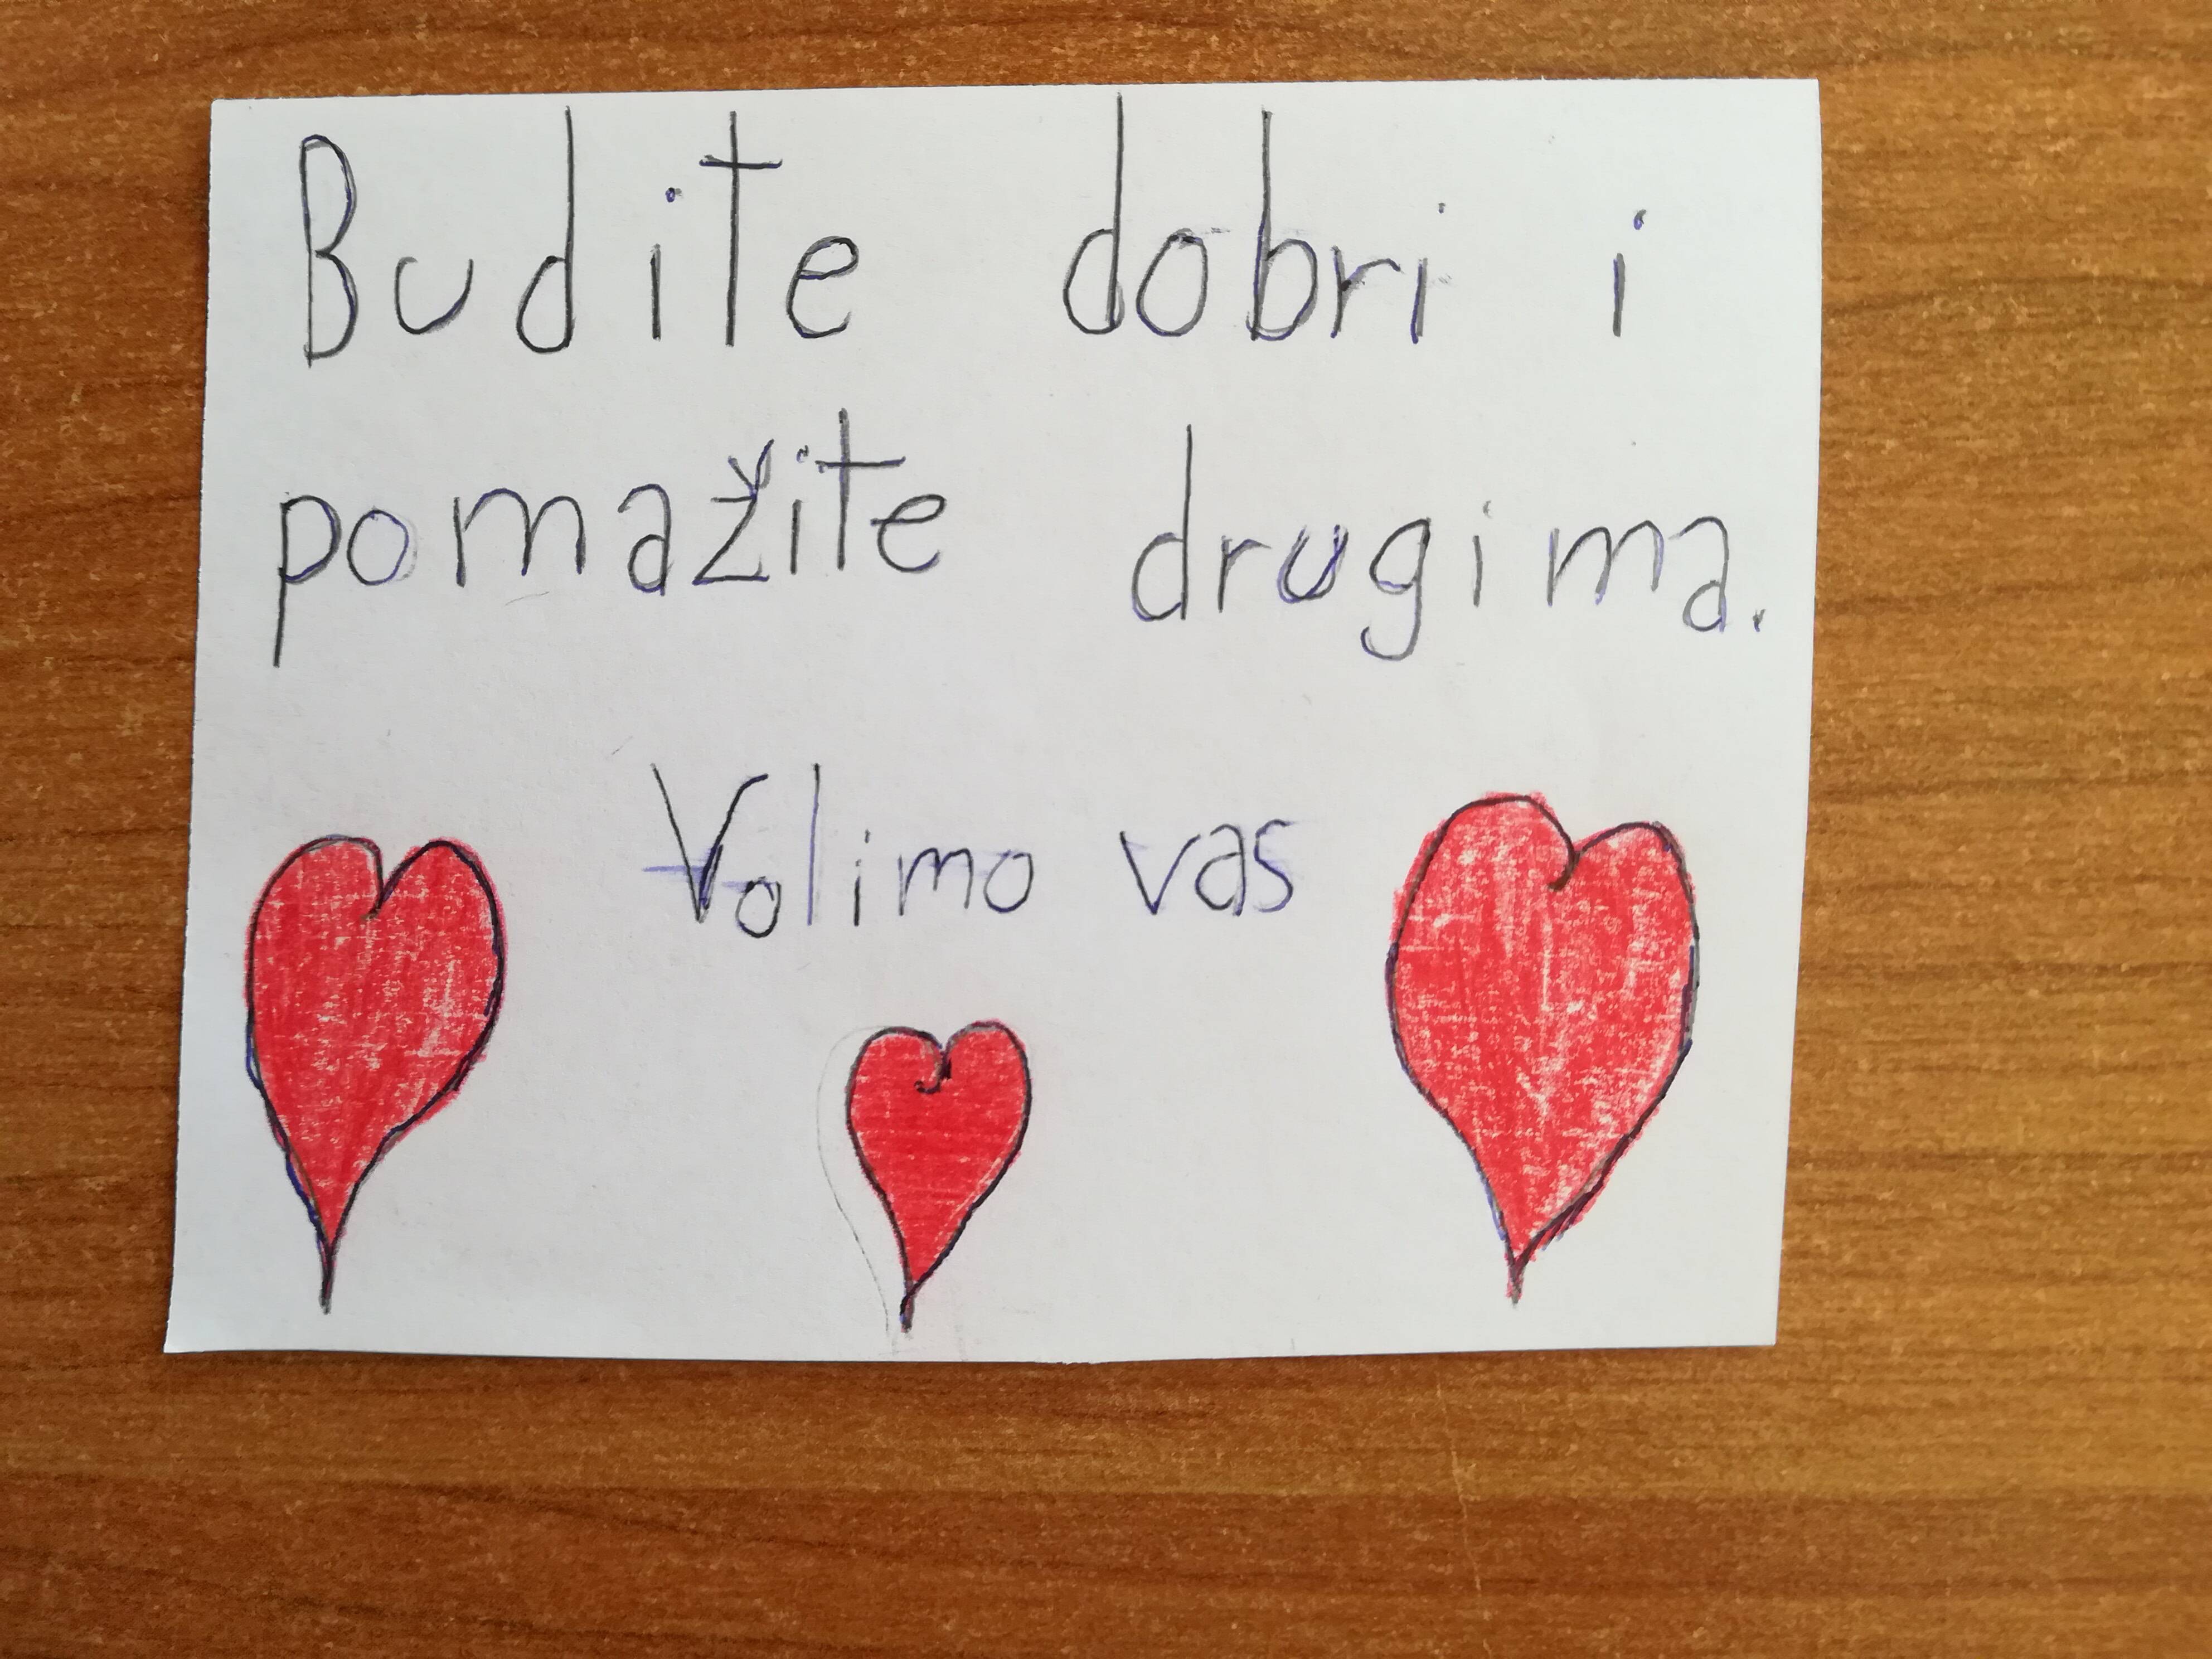 Budite dobri i
pomažite drugima.
Volimo vas